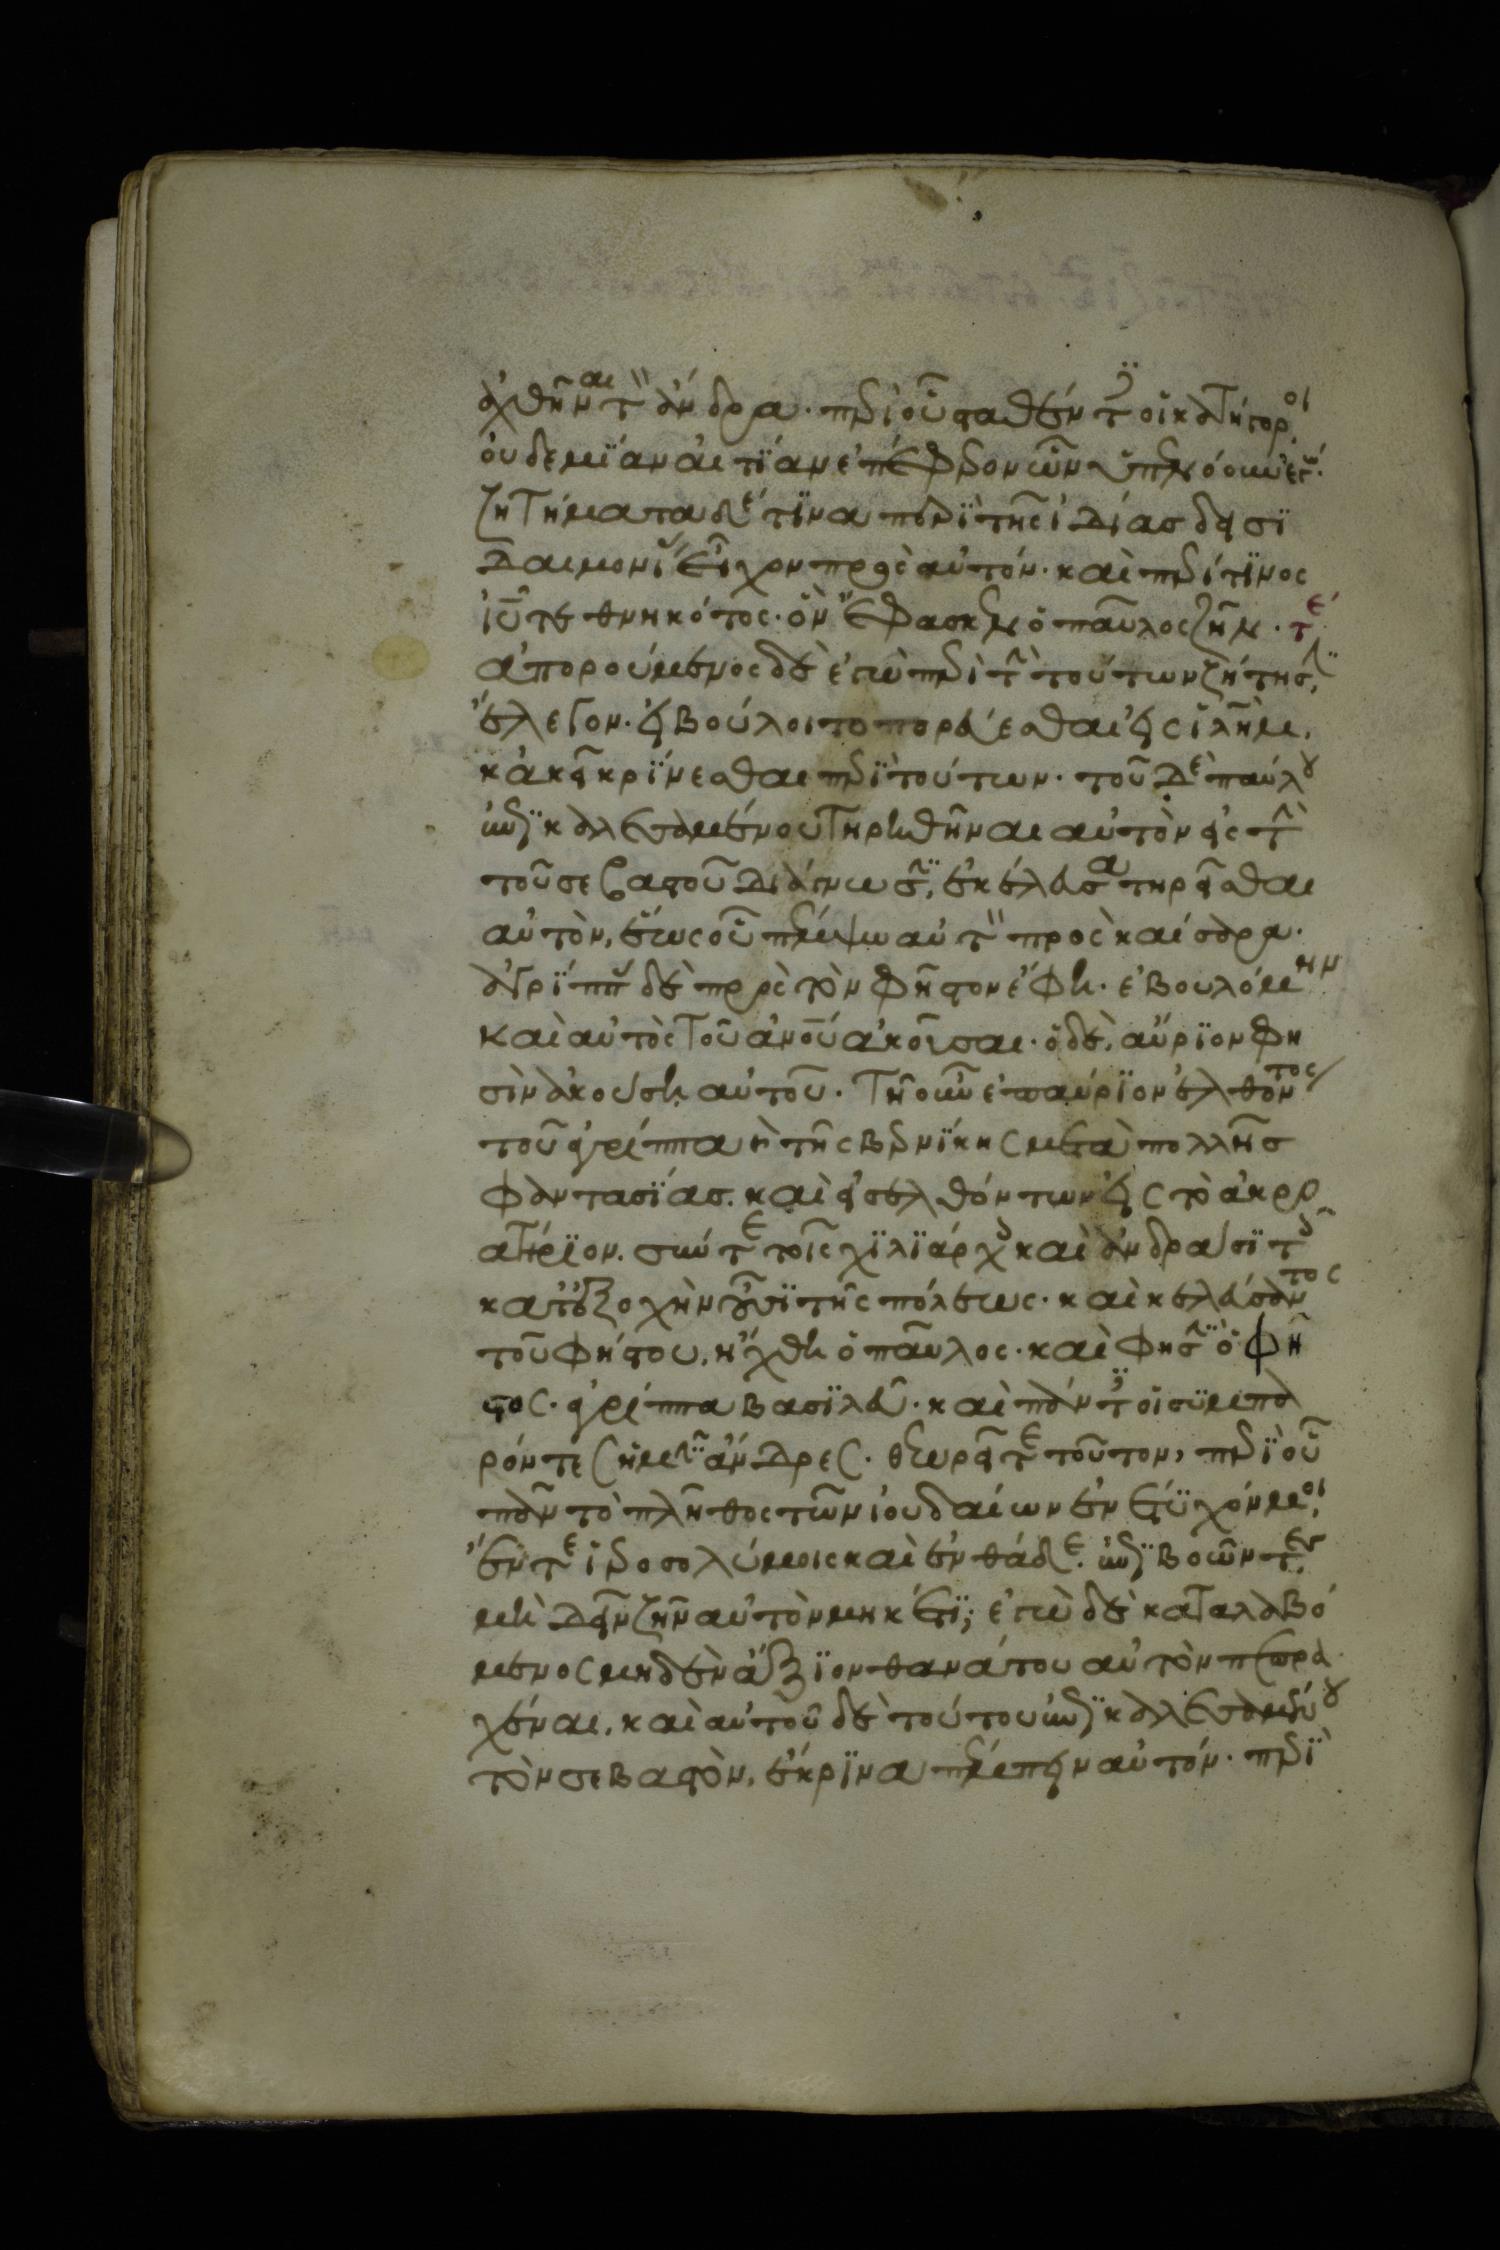 ἀχθῆναι τὸν ἄνδρα· περὶ οὗ σταθέντες οἱ κατήγοροι,
οὐδεμΐαν αἰτΐαν ἐπέφερον ὧν ὑπενόουν ἐγώ·
ζητήματα δέ τινα περὶ τῆς ἰδίας δεισϊ
δαιμονίας εἶχον πρὸς αὐτόν· καὶ περί τϊνος
ἰῦ τεθνηκότος· ὃν ἔφασκεν ὁ παῦλος ζῆν· τέ
ἀπορούμενος δὲ ἐγὼ περὶ τὴν τούτων ζήτησιν,
ἔλεγον· εἰ βούλοιτο πορεύεσθαι εἰς ἱλῆμ,
κἀκεῖ κρΐνεσθαι περὶ τούτων· τοῦ δὲ παύλου
ἐπϊκαλεσαμένου τηρηθῆναι αὐτὸν εἰς τὴν
τοῦ σεβαστοῦ διάγνωσιν, ἐκέλευσα τηρεῖσθαι
αὐτὸν, ἕως οὗ πέμψω αὐτὸν πρὸς καίσαρα·
ἀγρΐππας δὲ πρὸς τὸν φῆστον ἔφη· ἐβουλόμην
καὶ αὐτὸς τοῦ ἀνοῦ ἀκοῦσαι· ὁ δὲ, αὔρϊον φη
σὶν ἀκούσῃ αὐτοῦ· Τῇ οὖν ἐπαύρϊον ἐλθόντος
τοῦ ἀγρίππα καὶ τῆς βερνΐκης μετὰ πολλῆς
φαντασΐας· καὶ εἰσελθόντων εἰς τὸ ἀκρο
ατήρϊον· σύν τε τοῖς χϊλϊάρχοις καὶ ἀνδράσϊ τοῖς
κατ' ἐξοχὴν οὖσϊ τῆς πόλεως· καὶ κελεύσαντος
τοῦ φήστου, ἤχθη ὁ παῦλος· καὶ φησϊν ὁ φῆ
στος· ἀγρίππα βασϊλεῦ· καὶ πάντες οἱ συμπα
ρόντες ἡμῖν ἄνδρες· θεωρεῖτε τοῦτον, περὶ οὗ
πᾶν τὸ πλῆθος τῶν ἰουδαίων ἐνέτυχόν μοι,
ἔν τε ἱεροσολύμοις καὶ ἐνθάδε· ἐπϊβοῶντες,
μὴ δεῖν ζῆν αὐτὸν μηκέτϊ; ἐγὼ δὲ καταλαβό
μενος μηδὲν ἄξϊον θανάτου αὐτὸν πεπρα
χέναι, καὶ αὐτοῦ δὲ τούτου ἐπϊκαλεσαμένου
τὸν σεβαστὸν, ἔκρϊνα πέμπειν αὐτόν· περὶ